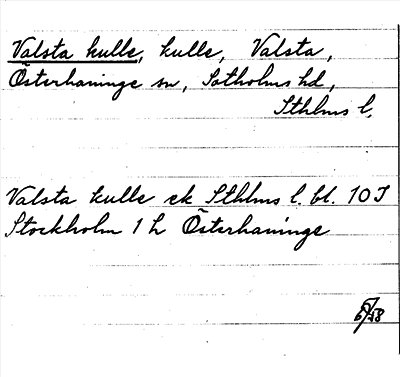 Valsta kulle, kulle, Valsta,
Österhaninge sn, Sotholms hd,
Sthlms l.
Valsta kulle ek Sthlms l. bl. 10 I
Stockholm 1 h Österhaninge